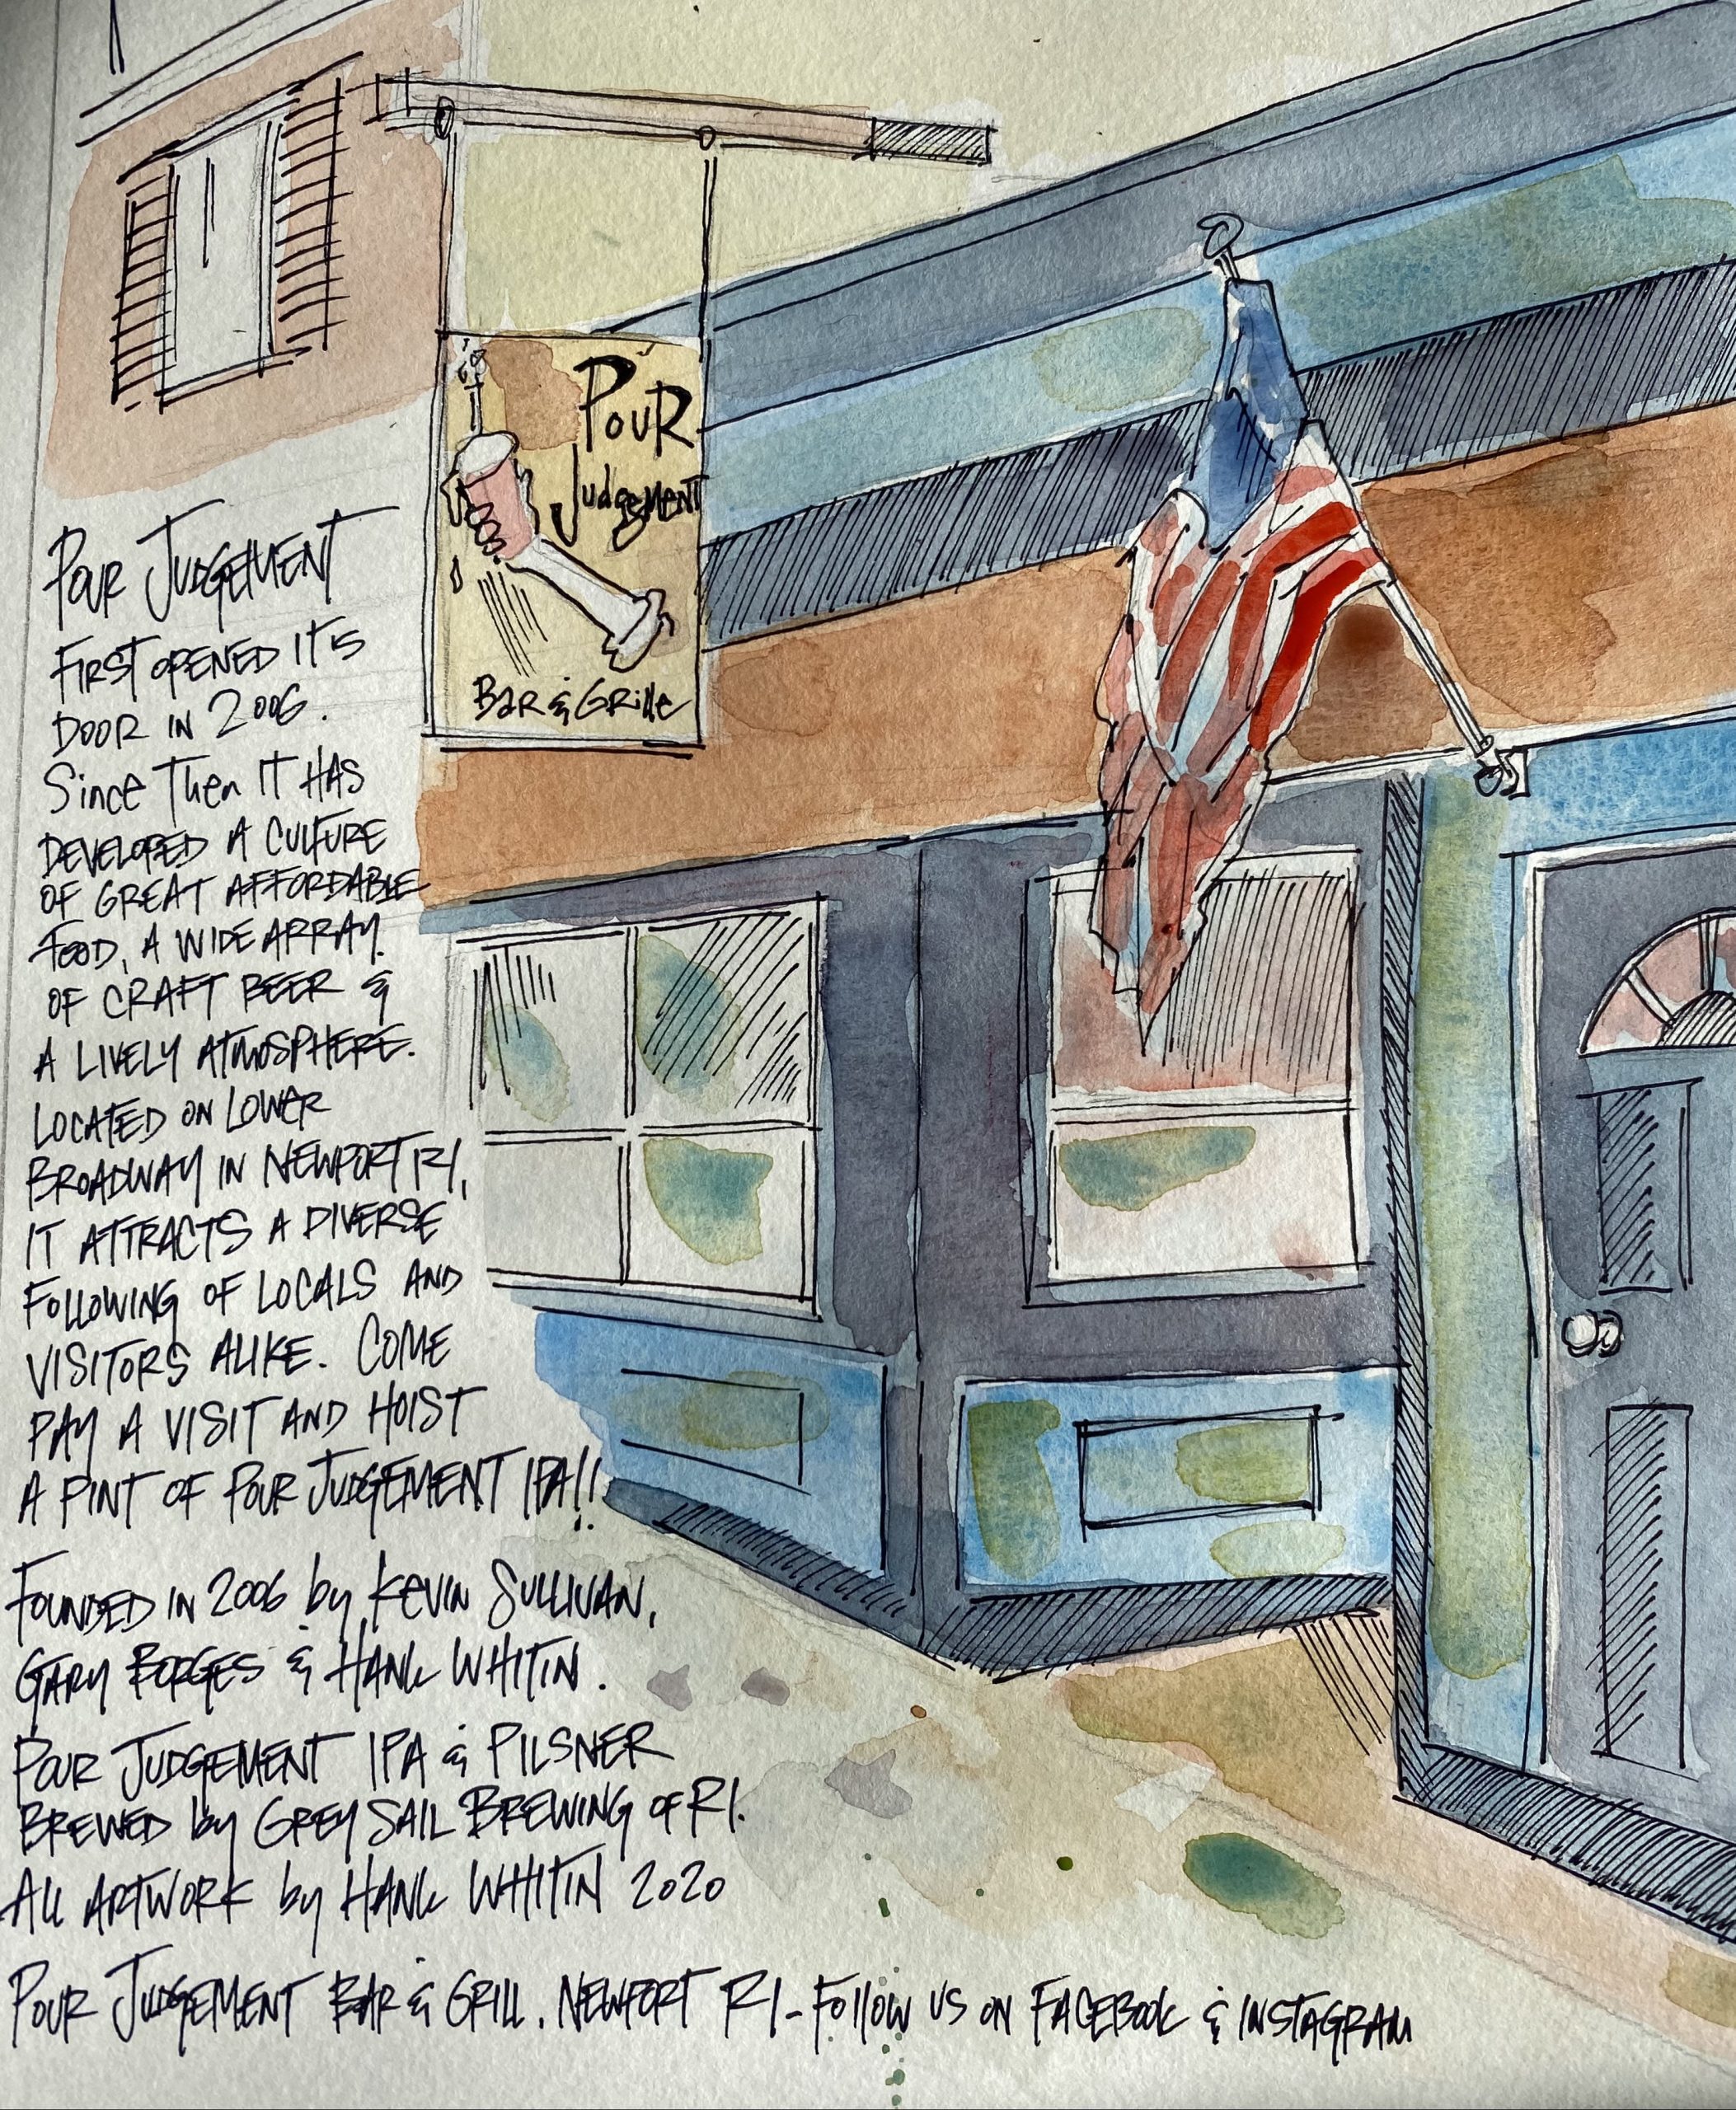 Pour
Judgement
Bar & Grille
Pour Judgement
First opened it's
door in 2006.
Since then it has
developed a culture
of great affordable
food, a wide array
of craft beer &
a lively atmosphere.
Located on lower
Broadway in Newport RI,
it attracts a diverse
following of locals and
visitors alike. Come
pay a visit and hoist
a pint of Pour Judgement IPA!!
Founded in 2006 by Kevin Sullivan,
Gary Borges & Hank Whitin.
Pour Judgement IPA & Pilsner
Brewed by Grey Sail Brewing of RI.
All artwork by Hank Whitin 2020
Pour Judgement Bar & Grill. Newport RI - Follow us on Facebook & Instagram